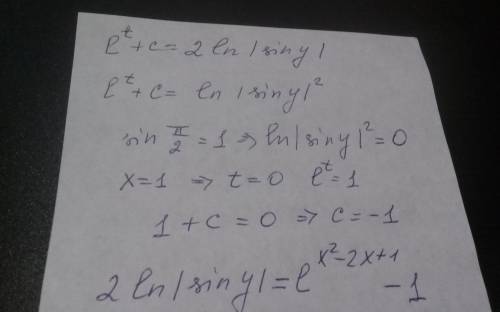 e^t + c = 2 ln |sin y|
e^t + c = ln |sin y|^2
sin π/2 = 1 ⇒ ln |sin y|^2 = 0
x = 1 ⇒ t = 0 e^t = 1
1 + c = 0 ⇒ c = -1
2 ln |sin y| = e^{x^2 - 2x + 1} - 1